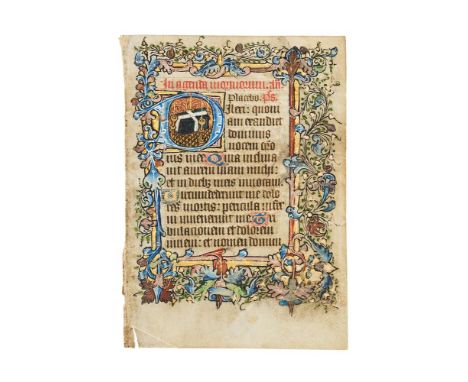 In agenda mortuorum. an
Placebo. ps
Dilexi quoni
am exaudiet
dominus
vocem oro
nis mee Quia inclina
vit aurem suam michi:
et in dieb; meis invocavi
Circumdederunt me dolo
res mortis: pericula infer
ni invenerunt me Tri
bulationem et dolorem
inveni: et nomen domini